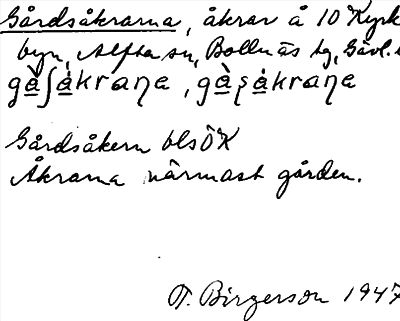 Gårdsåkrarna, åkrar å 10 Kyrk
byn, Alfta sn, Bollnäs tg, Gävl.
Gårdsåkern bl s ÖK
Åkrarna närmast gården.
T. Birgerson 1947